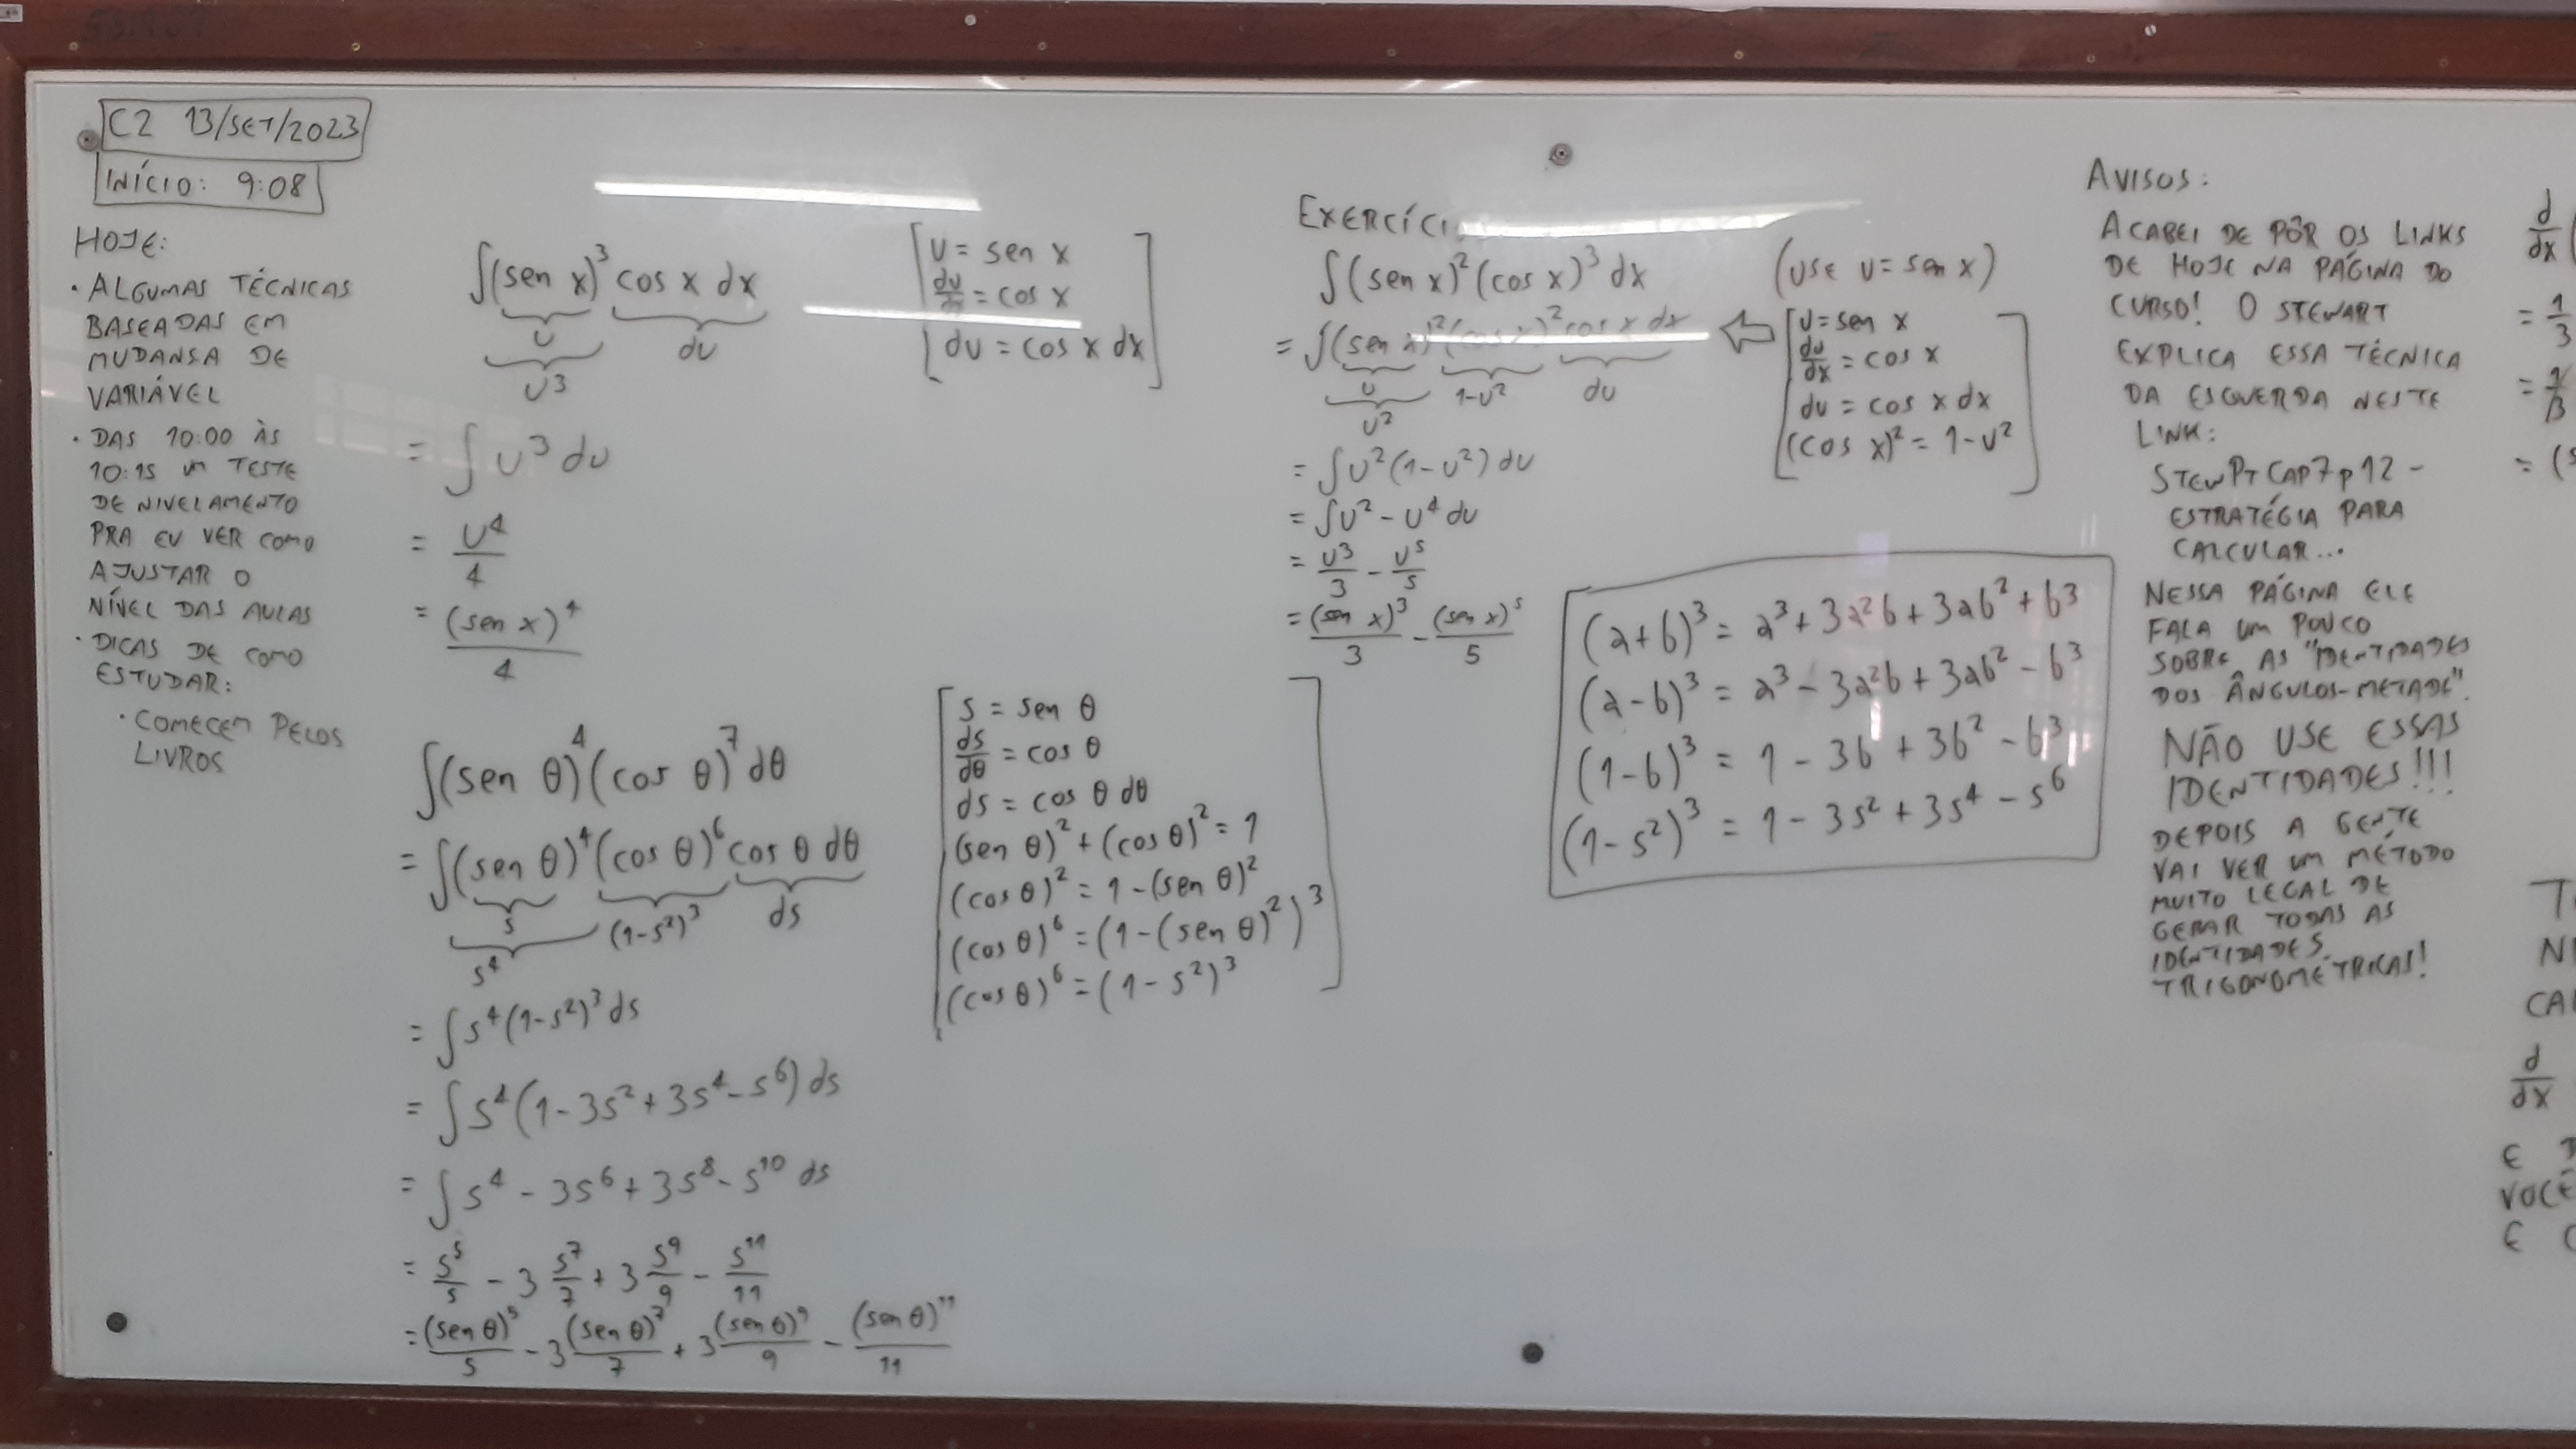 C2 13/SET/2023
INÍCIO: 9:08
HOJE:
• ALGUMAS TÉCNICAS
BASEADAS EM
MUDANSA DE
VARIÁVEL
• DAS 10:00 ÀS
10:15 UM TESTE
DE NIVELAMENTO
PRA EU VER COMO
AJUSTAR O
NÍVEL DAS AULAS
• DICAS DE COMO
ESTUDAR:
• COMECEM PELOS
LIVROS
∫(sen x)³ cos x dx
u
du
u³
= ∫ u³ du
= u⁴/4
= (sen x)⁴/4
[u = sen x
du/dx = cos x
du = cos x dx]
∫(sen θ)⁴(cos θ)⁷ dθ
= ∫(sen θ)⁴(cos θ)⁶ cos θ dθ
s
(1-s²)³ ds
s⁴
= ∫ s⁴(1-s²)³ ds
= ∫ s⁴(1-3s²+3s⁴-s⁶) ds
= ∫ s⁴ - 3s⁶ + 3s⁸ - s¹⁰ ds
= s⁵/5 - 3 s⁷/7 + 3 s⁹/9 - s¹¹/11
= (sen θ)⁵/5 - 3 (sen θ)⁷/7 + 3 (sen θ)⁹/9 - (sen θ)¹¹/11
[s = sen θ
ds/dθ = cos θ
ds = cos θ dθ
(sen θ)² + (cos θ)² = 1
(cos θ)² = 1 - (sen θ)²
(cos θ)⁶ = (1-(sen θ)²)³
(cos θ)⁶ = (1-s²)³]
EXERCÍCI
∫(sen x)²(cos x)³ dx
(USE u = sen x)
= ∫(sen x)²(cos x)² cos x dx
u
1-u² du
u²
= ∫u²(1-u²) du
= ∫u² - u⁴ du
= u³/3 - u⁵/5
= (sen x)³/3 - (sen x)⁵/5
⇐ [u = sen x
du/dx = cos x
du = cos x dx
(cos x)² = 1-u²]
(a+b)³ = a³ + 3a²b + 3ab² + b³
(a-b)³ = a³ - 3a²b + 3ab² - b³
(1-b)³ = 1 - 3b + 3b² - b³
(1-s²)³ = 1 - 3s² + 3s⁴ - s⁶
AVISOS:
ACABEI DE PÔR OS LINKS
DE HOJE NA PÁGINA DO
CURSO! O STEWART
EXPLICA ESSA TÉCNICA
DA ESQUERDA NESTE
LINK:
STEWPTCAP7p12 -
ESTRATÉGIA PARA
CALCULAR...
NESSA PÁGINA ELE
FALA UM POUCO
SOBRE AS "IDENTIDADES
DOS ÂNGULOS-METADE".
NÃO USE ESSAS
IDENTIDADES!!!
DEPOIS A GENTE
VAI VER UM MÉTODO
MUITO LEGAL DE
GERAR TODAS AS
IDENTIDADES
TRIGONOMÉTRICAS!
d/dx (
= 1/3
= (
CA
d/dx
E
VOCÊ
E